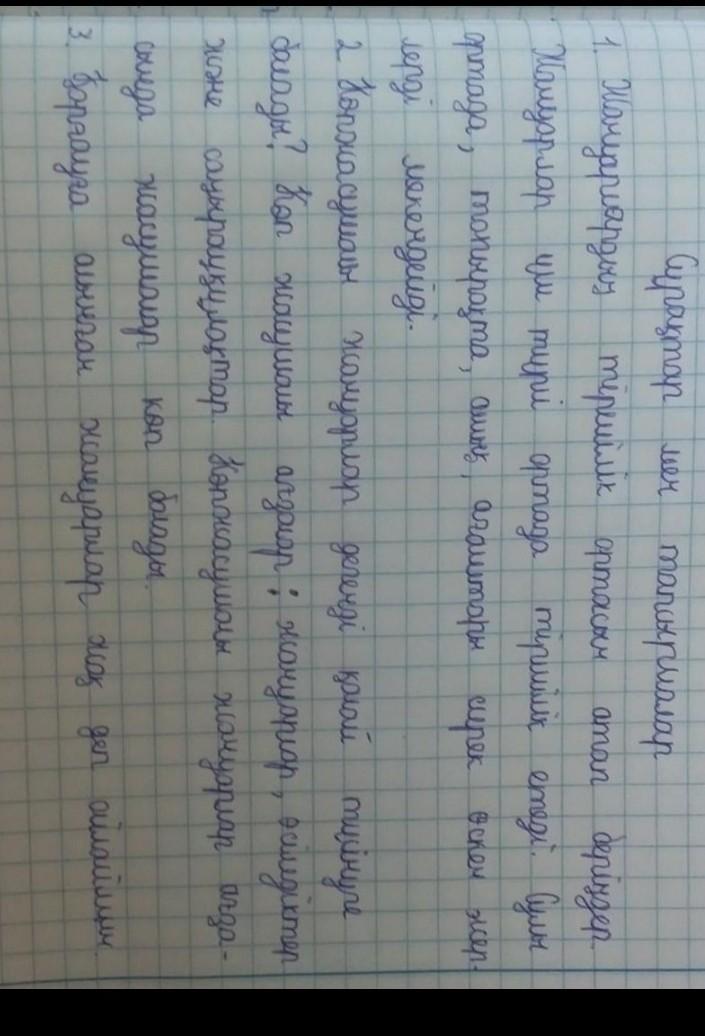 Сұрақтар мен тапсырмалар
1. Жануарлардың тіршілік ортасын атап беріңдер.
Жануарлар үш түрлі ортада тіршілік етеді. Сулы
ортада, топырақта, ашық, ағаштары сирек өскен жер-
лерді мекендейді.
2. Көпжасушалы жануарлар дегенді қалай түсінуге
болады? Көп жасушалы ағзалар: жануарлар, өсімдіктер
және саңырауқұлақтар. Көпжасушалы жануарлар ағза-
сында жасушалар көп болады.
3. Қорғауға алынған жануарлар жоқ деп ойлаймын.